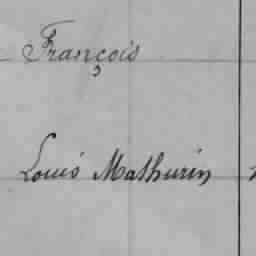 François
Louis Mathurin